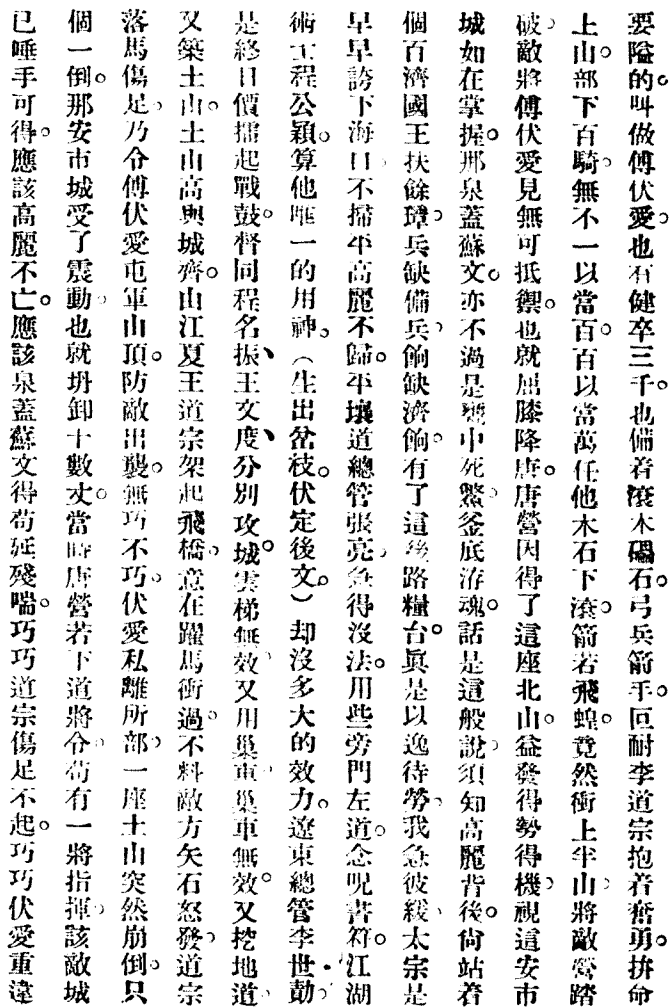 要隘的叫做傅伏愛。也有健卒三千。也備着滾木礧石。弓兵箭手。叵耐李道宗抱着奮勇。拚命
上山。部下百騎。無不一以當百。百以當萬。任他木石下滾。箭若飛蝗。竟然衝上半山。將敵營踏
破。敵將傅伏愛見無可抵禦。也就屈膝降唐。唐營因得了這座北山。益發得勢得機。視這安市
城如在掌握。那泉蓋蘇文。亦不過是甕中死鱉。釜底游魂。話是這般說。須知高麗背後。尙站着
個百濟國王扶餘璋。兵缺備兵。餉缺濟餉。有了這後路糧台。眞是以逸待勞。我急彼緩。太宗是
早早誇下海口。不掃平高麗不歸。平壤道總管張亮。急得沒法。用些旁門左道。念呪書符。江湖
術士程公穎。算他唯一的用神。(生出岔枝。伏定後文。)却沒多大的效力。遼東總管李世勣。
是終日價擂起戰鼓。督同程名振、王文度、分別攻城。雲梯無效。又用巢車。巢車無效。又挖地道。
又築土山。土山高與城齊。山江夏王道宗架起飛橋。意在躍馬衝過。不料敵方矢石怒發。道宗
落馬傷足。乃令傅伏愛屯軍山頂。防敵出襲。無巧不巧。伏愛私離所部。一座土山突然崩倒。只
個一倒。那安市城受了震動。也就坍卸十數丈。當時唐營若下道將令。苟有一將指揮。該敵城
已唾手可得。應該高麗不亡。應該泉蓋蘇文得苟延殘喘。巧巧道宗傷足不起。巧巧伏愛重違